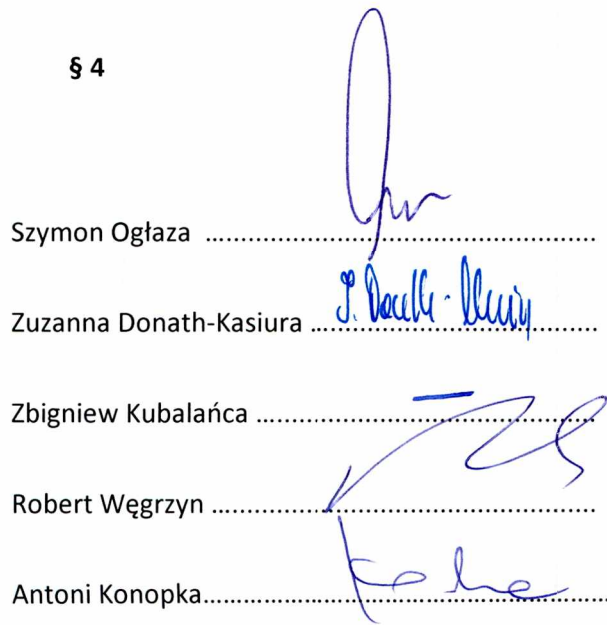 § 4
Szymon Ogłaza ................................................
Zuzanna Donath-Kasiura ...................................
Zbigniew Kubalańca ..........................................
Robert Węgrzyn ................................................
Antoni Konopka..................................................